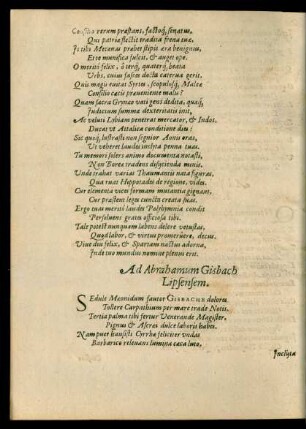 Consilio rerum præstans, factoq́; senatus,
Qui patriæ flectit tradita frena suæ.
Is tibi Mecœnas præbet stipis æra benignus,
Ære munifica fulcit, & auget ope.
O meriti felix, ô terq́; quaterq́; beata
Urbs, cuius fasces docta caterva gerit.
Quis magis vitat Syrtes, scopulosq́; Malea
Consilio vatis præveniente malis?
Quam sacra Grynæo vati gens dedita, quæq́;
Judicium summa dexteritatis init.
Ac velut Lybiam penetrat mercator, & Indos,
Ducat ut Attalica conditione diu:
Sic quoq́; lustrasti non signior Aonis oras,
Ut veheret laudis inclyta penna tuas.
Tu memori solers animo documenta notasti,
Non Borea tradens defluienda mutis.
Unde trahat varias Thaumantis nata figuras,
Qua ruat Hippotades de regione, vides.
Cur elementa vices formam mutantia gignant,
Cur præstent legi cunctis creata suæ.
Ergo tuas meriti laudes Polyhymnia condit
Persolvens gratis officiosa tibi.
Tale potest nunquam labens delere vetustas,
Quod labor, & virtus promeruêre, decus.
Vive diu felix, & Spartam nactus adorna,
Inde tuo mundus nomine plenus erit.
Ad Abrahamum Gisbach
Lipsensem.
Sedule Meonidum fautor GISBACHE dolores
Tollere Carpathium per mare trade Notis.
Tertia palma tibi fertur Venerande Magister,
Pignus & Ascræi dulce laboris habes.
Namque ut hausisti Cyrrhæ feliciter undas
Barbarico relevans lumina cæsa luto,
Inclyta